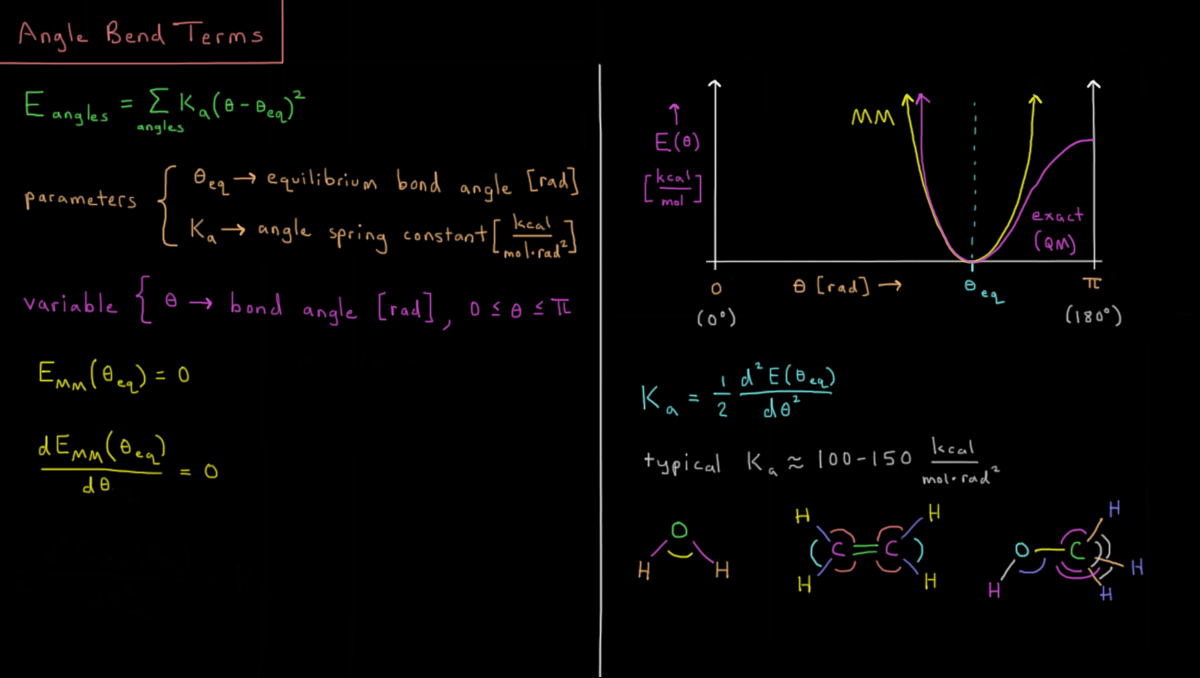 Angle Bend Terms
E angles = Σ angles Kₐ(θ - θeq)²
parameters
θeq → equilibrium bond angle [rad]
Kₐ → angle spring constant [kcal/mol·rad²]
variable { θ → bond angle [rad], 0 ≤ θ ≤ π
E_MM(θeq) = 0
dE_MM(θeq)/dθ = 0
↑
E(θ)
[kcal/mol]
MM
exact
(QM)
0 θ [rad] → θeq π
(0°) (180°)
Kₐ = 1/2 d²E(θeq)/dθ²
typical Kₐ ≈ 100-150 kcal/mol·rad²
O
H H
H H
C C
H H
H
O C
H
H H